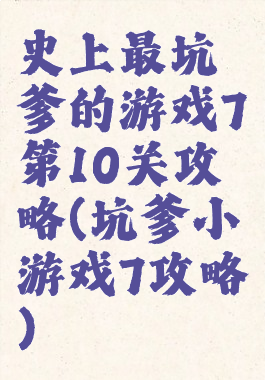 史上最坑
爹的游戏7
第10关攻
略(坑爹小
游戏7攻略
)